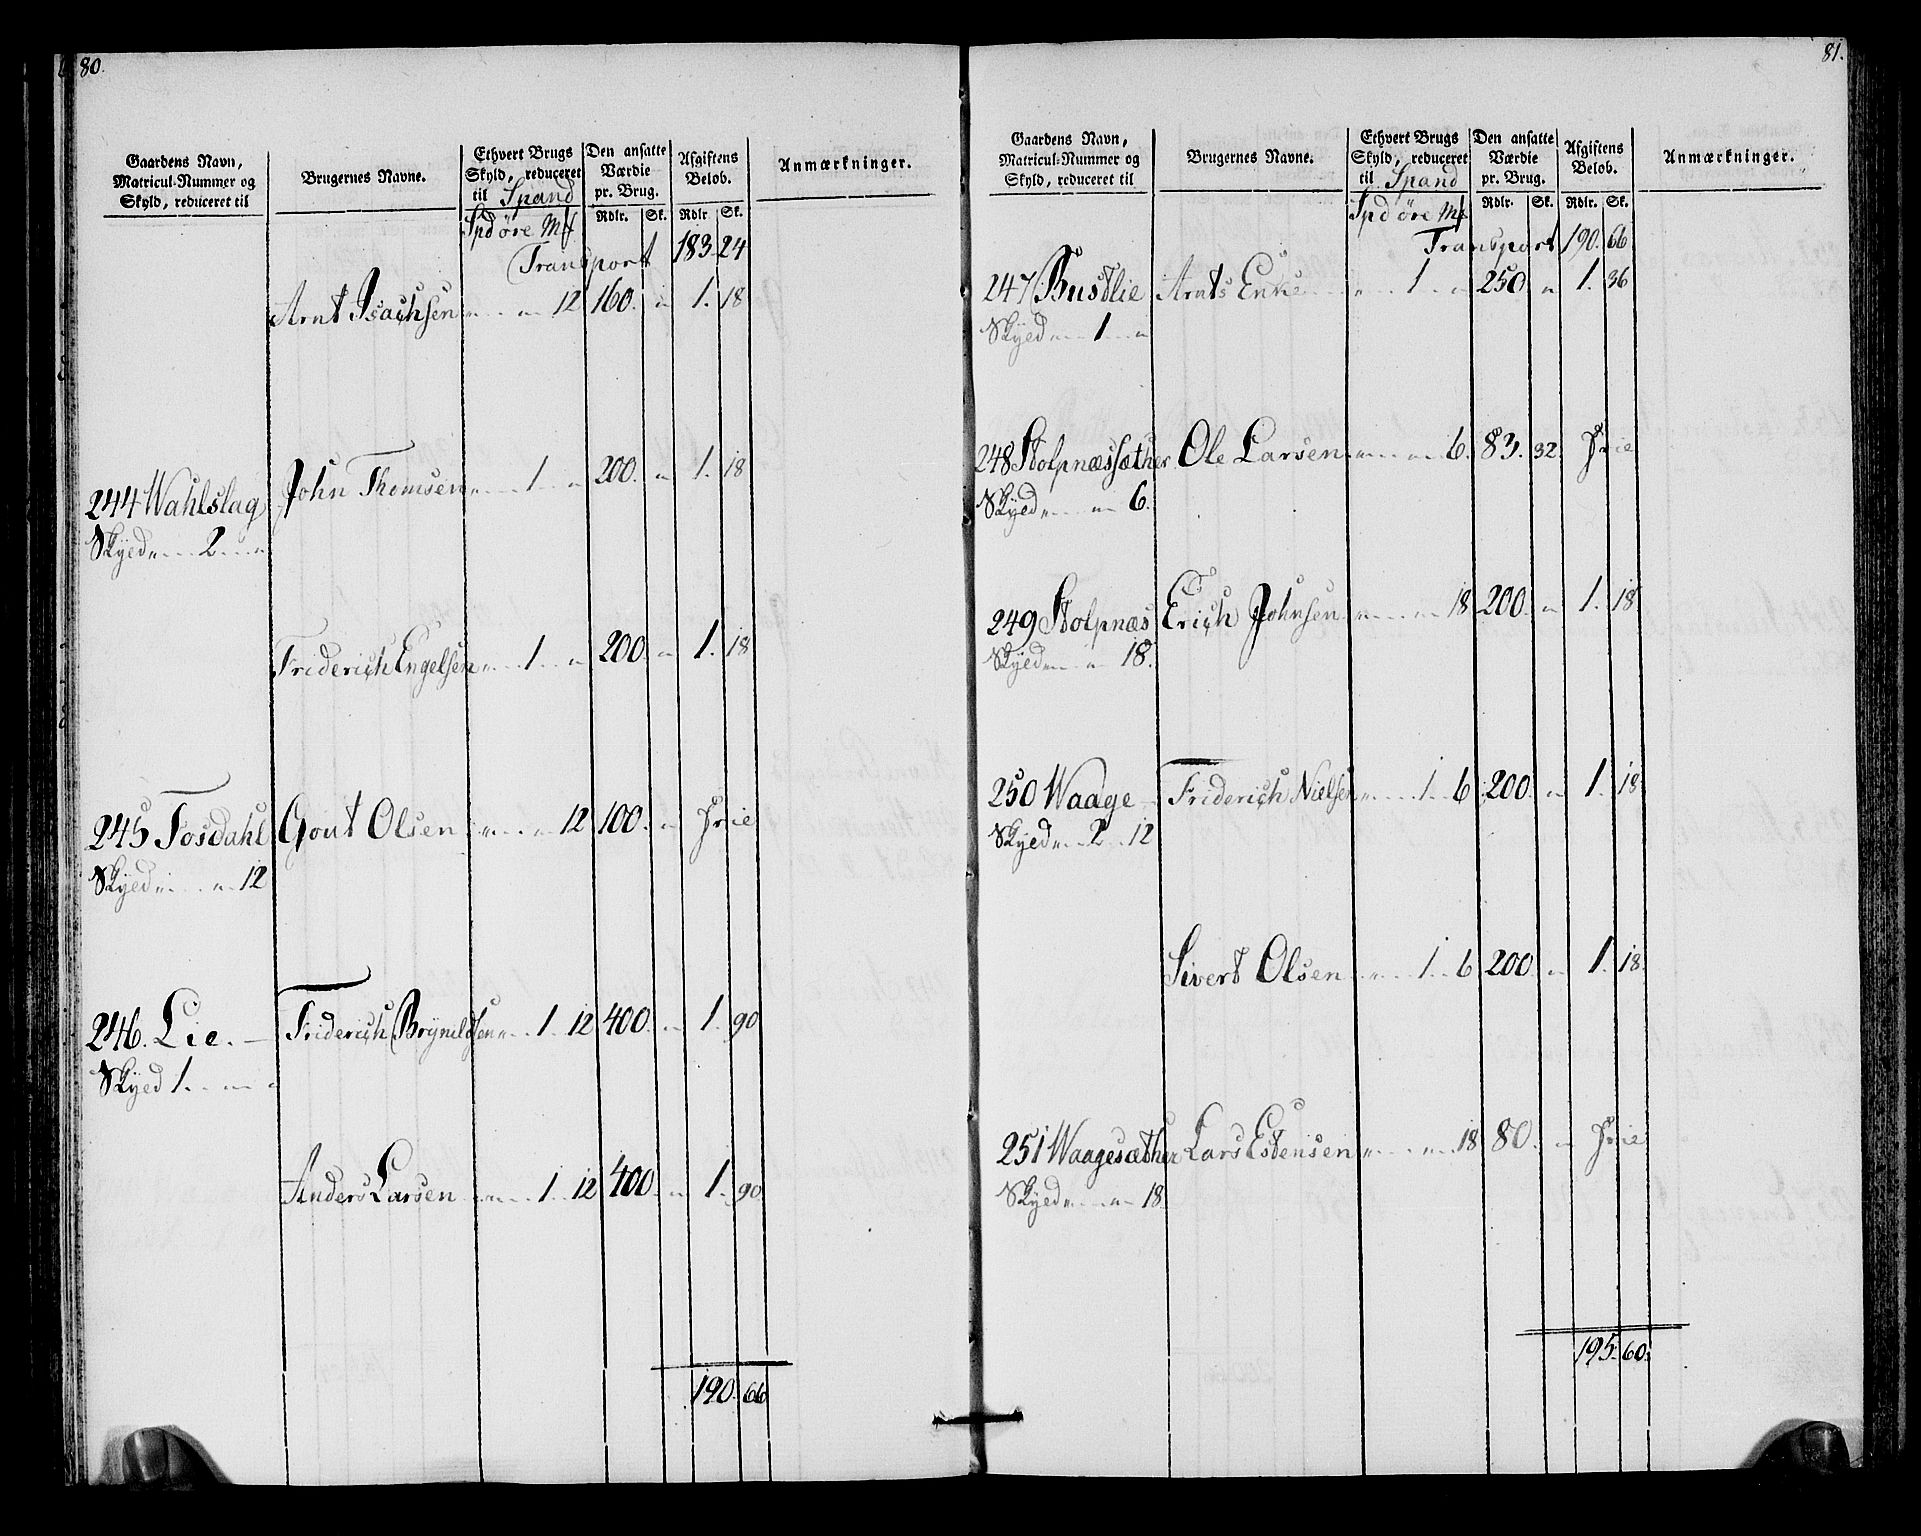 80.
Gaardens Navn, Matricul-Nummer og Skyld, reduceret til
Brugernes Navne.
Ethvert Brugs Skyld, reduceret til Spand
Den ansatte Værdie pr. Brug.
Afgiftens Beløb.
Anmærkninger.
Spd øre Mk Rdlr. Sk. Rdlr. Sk.
Transport 183. 24
Arnt Isachsen " " 12 160. " 1. 18
244 Wahlslag John Thomsen " 1 " 200. " 1. 18
Skyed " 2 "
Friderich Engelsen " 1 " 200. " 1. 18
245 Fosdahl Gout Olsen " " 12 100. " Frie
Skyed " " 12
246. Lie. Friderich Brynildsen " 1 12 400. " 1. 90
Skyed 1. " "
Anders Larsen " 1 12 400. " 1. 90
190. 66
81.
Gaardens Navn, Matricul-Nummer og Skyld, reduceret til
Brugernes Navne.
Ethvert Brugs Skyld, reduceret til Spand
Den ansatte Værdie pr. Brug.
Afgiftens Beløb.
Anmærkninger.
Spd øre Mk Rdlr. Sk. Rdlr. Sk.
Transport 190. 66
247 Bustlie Arnts Enke " 1 " 250. " 1. 36
Skyed " 1 "
248 Stolpnæssæther Ole Larsen " " 6. 83. 32 Frie
Skyed " " 6.
249 Stolpnæs Erich Johnsen " " 18 200. " 1. 18
Skyed " " 18.
250 Waage Friderich Nielsen " 1 6 200. " 1. 18
Skyed " 2 12
Sivert Olsen " 1 6 200 " 1. 18.
251 Waagesæther Lars Estensen " " 18 80. " Frie
Skyed " " 18.
195. 60.